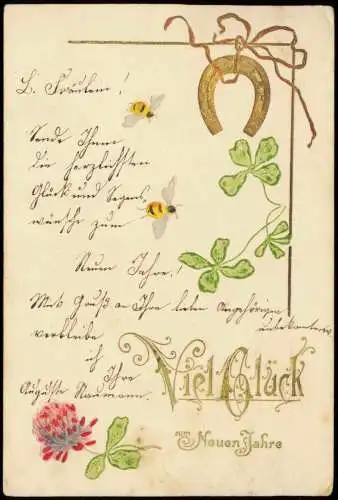 L. Fräulein!
Sende Ihnen
die herzlichsten
Glück und Segens,
wünsche zum
Neuen Jahre!
Mit Gruß an Ihre lieben Angehörigen
unbekanterw.
verbleibe
ich
Ihre
Auguste Naumann.
Viel Glück
zum Neuen Jahre